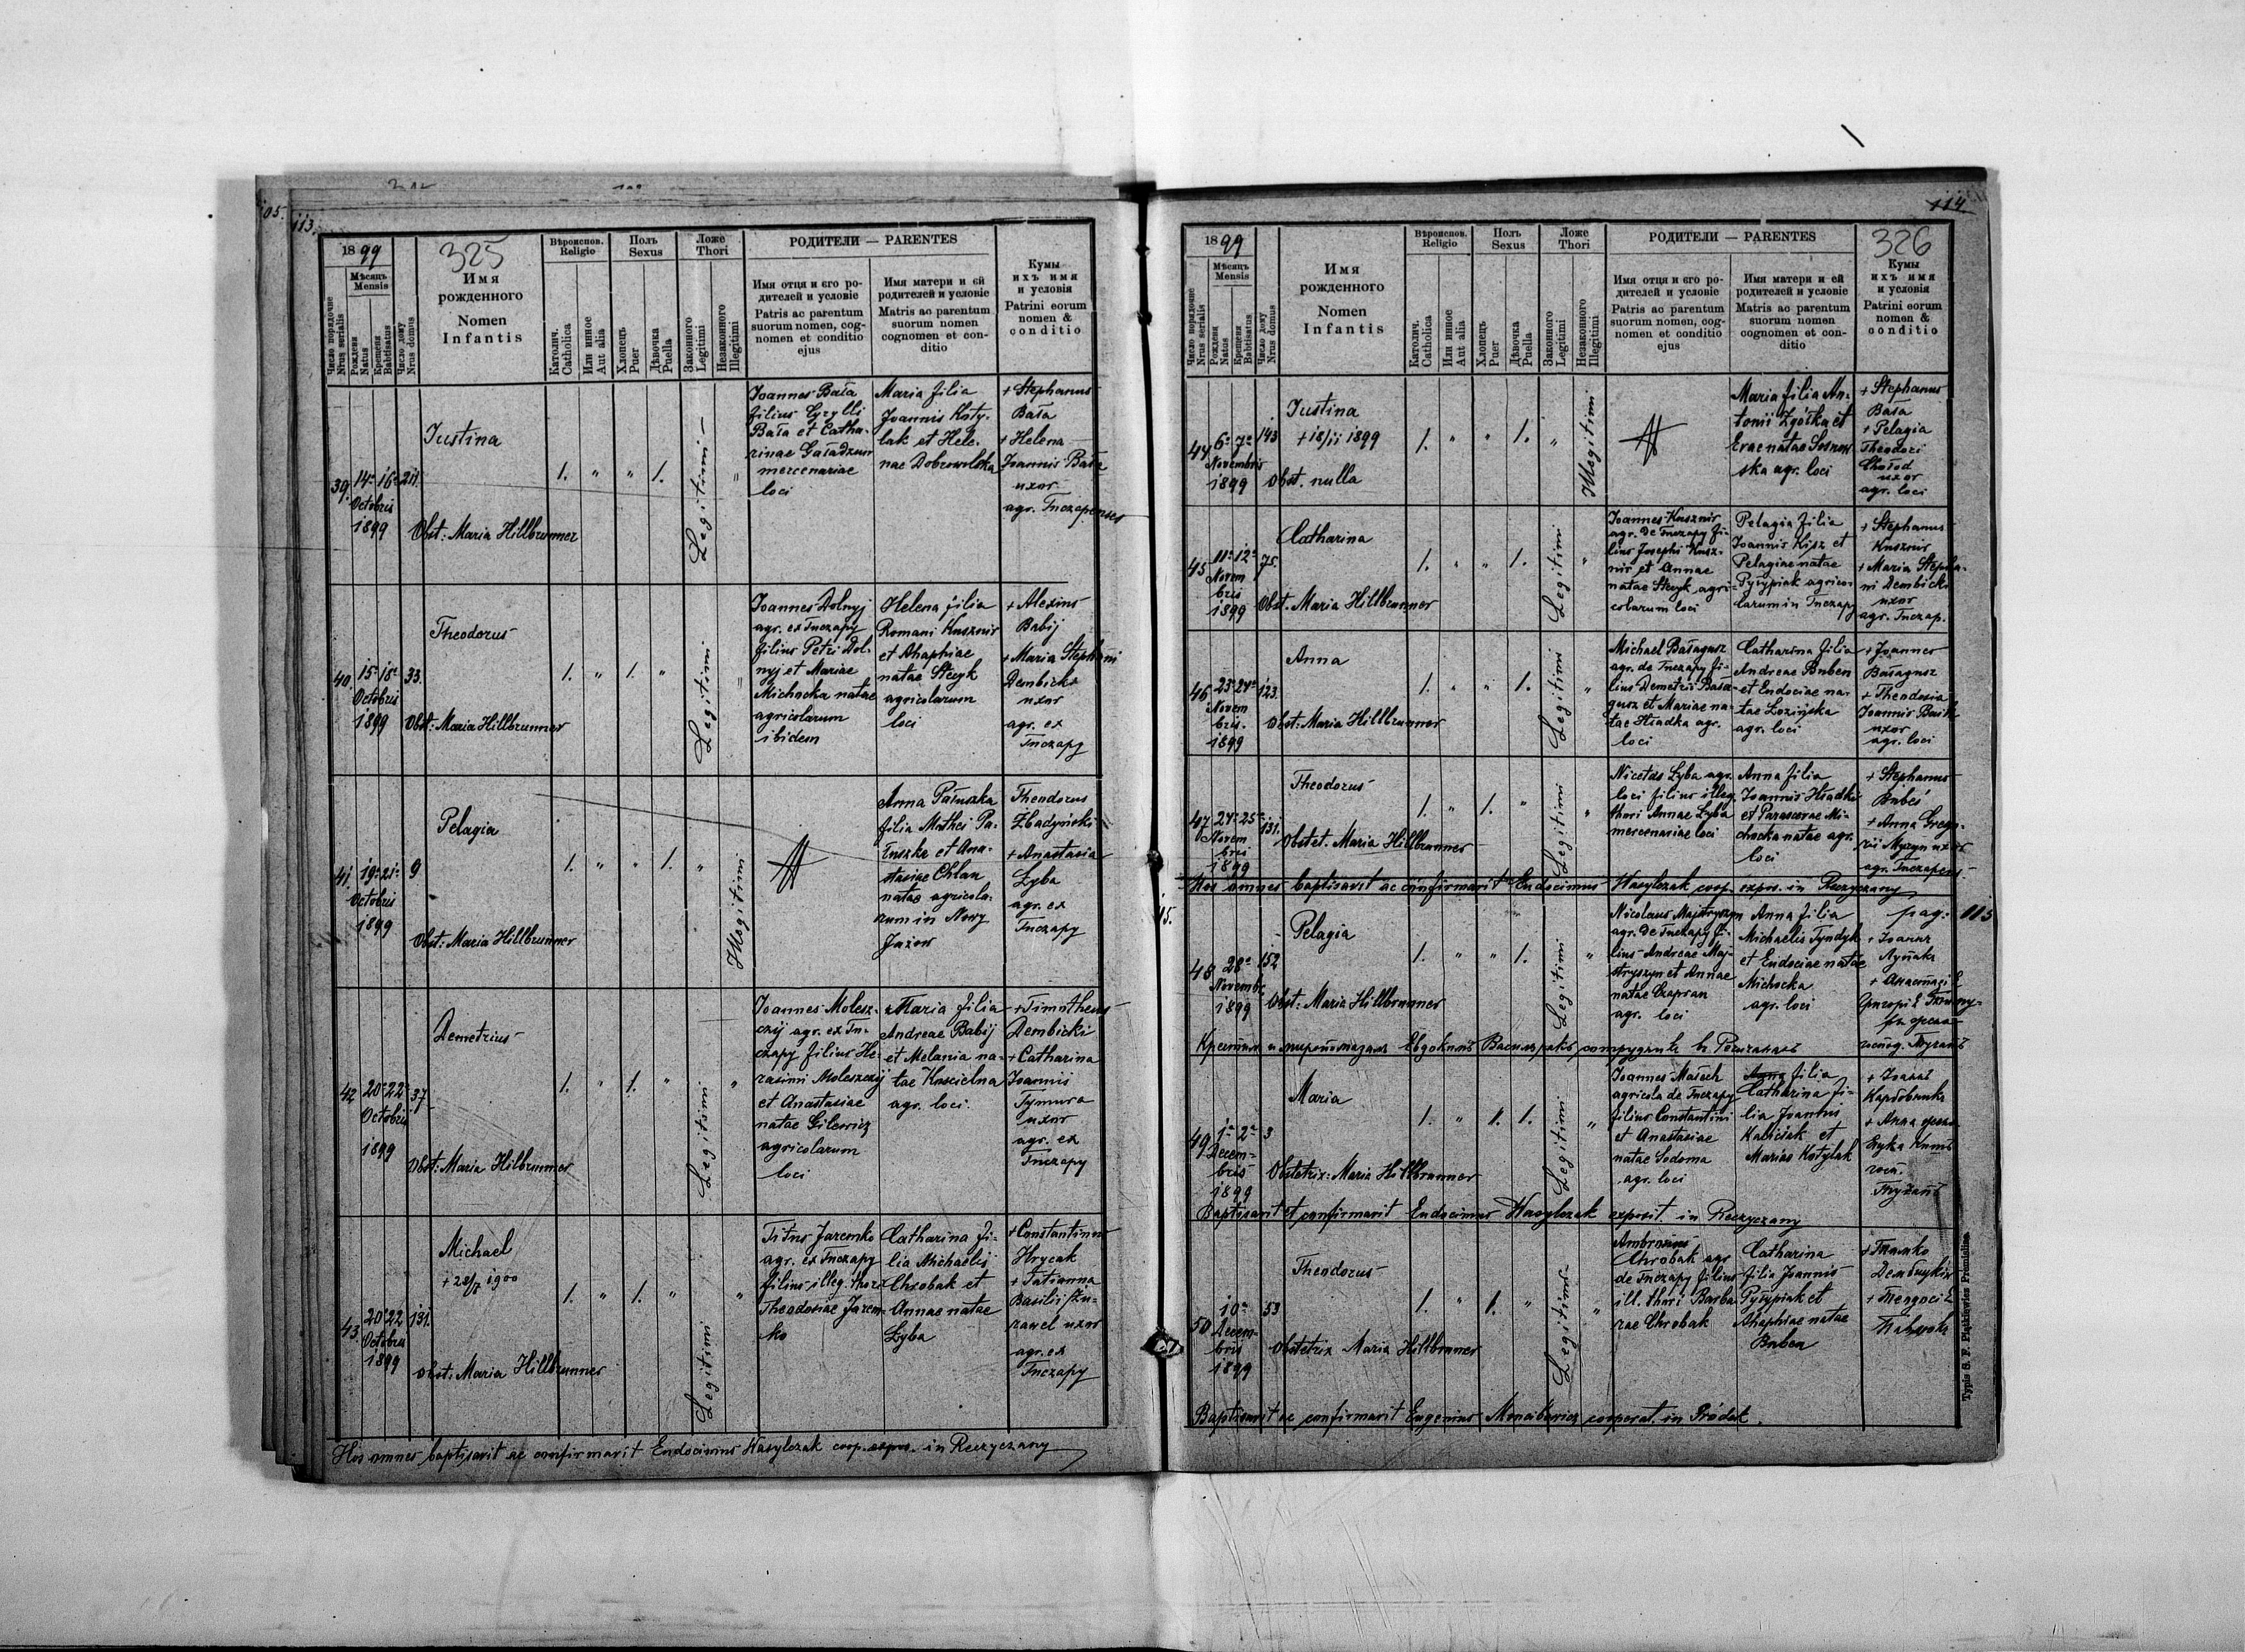 105.
113.
1899
325
Мѣсяць
Mensis
Число порядочне
Nrus serialis
Рождени
Natus
Крещени
Babtisatus
Число дому
Nrus domus
Имя
рожденного
Nomen
Infantis
Вѣроиспов.
Religio
Католич.
Catholica
Или инное
Aut alia
Полъ
Sexus
Хлопець
Puer
Дѣвочка
Puella
Ложе
Thori
Законного
Legitimi
Незаконного
Illegitimi
РОДИТЕЛИ — PARENTES
Имя отця и єго ро-
дителей и условіє
Patris ac parentum
suorum nomen, cog-
nomen et conditio
ejus
Имя матери и єй
родителей и условіє
Matris ac parentum
suorum nomen
cognomen et con-
ditio
Кумы
ихъ имя
и условія
Patrini eorum
nomen &
conditio
39.
14ª 16ª
Octobris
1899
211.
Justina
Obst: Maria Hillbrunner
1. " " 1.
Legitimi —
"
Joannes Bała
filius Cyrylli
Bała et Catha-
rinae Gaładzun
mercenariae
loci
Maria filia
Joannis Koty-
lak et Hele-
nae Dobrowolska
+ Stephanus
Bała
+ Helena
Joannis Bała
uxor
agr. Tuczapenses
40.
15ª 18ª
Octobris
1899
33.
Theodorus
Obst: Maria Hillbrunner
1. " 1. "
Legitimi
"
Joannes Dolnyj
agr. ex Tuczapy
filius Petri Dol-
nyj et Mariae
Michocka natae
agricolarum
ibidem
Helena filia
Romani Kusznir
et Ahaphiae
natae Stecyk
agricolarum
loci
+ Alexius
Babij
+ Maria Stephani
Dembicki
uxor
agr. ex
Tuczapy
41.
19ª 21ª
Octobris
1899
9
Pelagia
Obst: Maria Hillbrunner
1. " " 1.
"
Illegitimi
Anna Pałuszka
filia Mathei Pa-
łuszke et Ana-
stasiae Chlan
natae agricola-
rum in Nowy
Jażow
Theodorus
Zbadyński
+ Anastasia
Łyba
agr. ex
Tuczapy
42
20ª 22ª
Octobris
1899
37
Demetrius
Obst: Maria Hilbrunner
1. " 1. "
Legitimi
"
Joannes Molesz-
czij agr. ex Tu-
czapy filius He-
rasimi Moleszczij
et Anastasiae
natae Gilewicz
agricolarum
loci
Maria filia
Andreae Babij
et Melania na-
tae Koscielna
agr. loci.
+ Timotheus
Dembicki
+ Catharina
Joannis
Tymura
uxor
agr. ex
Tuczapy
43.
20 22
Octobris
1899
131.
Michael
+ 28/7 1900
Obst: Maria Hillbrunner
1. " 1. "
Legitimi
"
Titus Jaremko
agr. ex Tuczapy
filius illeg. thori
Theodosiae Jarem-
ko
Catharina fi-
lia Michaelis
Chrobak et
Annae natae
Łyba
+ Constantinus
Hrycak
+ Tatianna
Basilii
uxor
agr. ex
Tuczapy
Hos omnes baptisavit ac confirmavit Eudocimus Wasylczak coop. expos. in Reczyczany
114
1899
326
Мѣсяць
Mensis
Число порядочне
Nrus serialis
Рождени
Natus
Крещени
Babtisatus
Число дому
Nrus domus
Имя
рожденного
Nomen
Infantis
Вѣроиспов.
Religio
Католич.
Catholica
Или инное
Aut alia
Полъ
Sexus
Хлопець
Puer
Дѣвочка
Puella
Ложе
Thori
Законного
Legitimi
Незаконного
Illegitimi
РОДИТЕЛИ — PARENTES
Имя отця и єго ро-
дителей и условіє
Patris ac parentum
suorum nomen, cog-
nomen et conditio
ejus
Имя матери и єй
родителей и условіє
Matris ac parentum
suorum nomen
cognomen et con-
ditio
Кумы
ихъ имя
и условія
Patrini eorum
nomen &
conditio
44.
6ª 7ª
Novembris
1899
143
Justina
+ 18/11 1899
Obst. nulla
1. " " 1.
"
Illegitimi
Maria filia An-
tonii Zgótka et
Evae natae Sosnow
ska agr. loci
+ Stephanus
Bała
+ Pelagia
Theodori
Chołod
uxor
agr. loci
45
11ª 12ª
Novem
bris
1899
75.
Catharina
Obst. Maria Hillbrunner
1. " " 1.
Legitimi
"
Joannes Kusznir
agr. de Tuczapy fi-
lius Josephi Kusz-
nir et Annae
natae Stecyk agri-
colarum loci
Pelagia filia
Joannis Kisz et
Pelagiae natae
Pyłypiak agrico-
larum in Tuczapy
+ Stephanus
Kusznir
+ Maria Stepha-
ni Dembicki
uxor
agr. Tuczap.
46
23ª 24ª
Novem
bris.
1899
123.
Anna
Obst: Maria Hillbrunner
1. " " 1.
Legitimi
"
Michael Bałagusz
agr. de Tuczapy fi-
lius Demetrii Bała-
gusz et Mariae na-
tae Hładka agr.
loci
Catharina filia
Andreae Buben
et Eudociae na-
tae Łozińska
agr. loci
+ Joannes
Bałagusz
+ Theodosia
Joannis
uxor
agr. loci
47
24ª 25ª
Novem
bris
1899
131.
Theodorus
Obstet. Maria Hillbrunner
1. " 1. "
Legitimi
"
Nicetas Łyba agr.
loci filius illeg.
thori Annae Łyba
mercenariae loci
Anna filia
Joannis Hładki
et Parascevae Mi-
chocka natae agr.
loci
+ Stephanus
Bubeś
+ Anna Grego-
rii uxor
agr. Tuczapens
Hos omnes baptisavit ac confirmavit Eudocimus Wasylczak coop. expos. in Reczyczany
115.
48
28ª
Novemb.
1899
152
Pelagia
Obst: Maria Hillbrunner
1. " " 1.
Legitimi
"
Nicolaus Majstryszyn
agr. de Tuczapy fi-
lius Andreae Maj-
stryszyn et Annae
natae Czapran
agr. loci
Anna filia
Michaelis Tyndyk
et Eudociae natae
Michocka
agr. loci
pag: 115
Крестил и миропомазал Евдокимъ Василчакъ сотрудник в Речичанах
49
1ª 2ª
Decem-
bris
1899
3
Maria
Obstetrix: Maria Hillbrunner
1. " 1. 1.
Legitimi
"
Joannes Małech
agricola de Tuczapy
filius Constantini
et Anastasiae
natae Sodoma
agr. loci
Anna filia
Catharina fi-
lia Joannis
Kaliciak et
Mariae Kotylak
Baptisavit et confirmavit Eudocimus Wasylczak exposit. in Reczyczany
50
10ª
Decem-
bris
1899
53
Theodorus
Obstetrix Maria Hillbrunner
1. " 1. "
Legitimi
"
Ambrosius
Chrobak agr.
de Tuczapy filius
ill. thori Barba-
rae Chrobak
Catharina
filia Joannis
Pyłypiak et
Ahaphiae natae
Buben
Baptisavit ac confirmavit Eugenius cooperat. in Gródek.
Typis S. F. Piątkiewicz Premisliae.